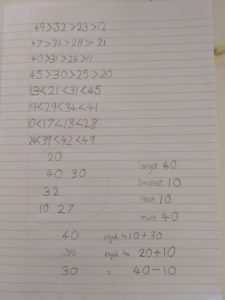 49>32>23>12
47>36>28>21
40>31>26>11
45>30>25>20
19<21<31<45
19<29<34<41
10<17<18<28
24<39<42<49
20
40 30
32
10 27
largest 40
Smallest 10
least 10
most 40
40 equal to 10+30
30 equal to 20+10
30 = 40-10